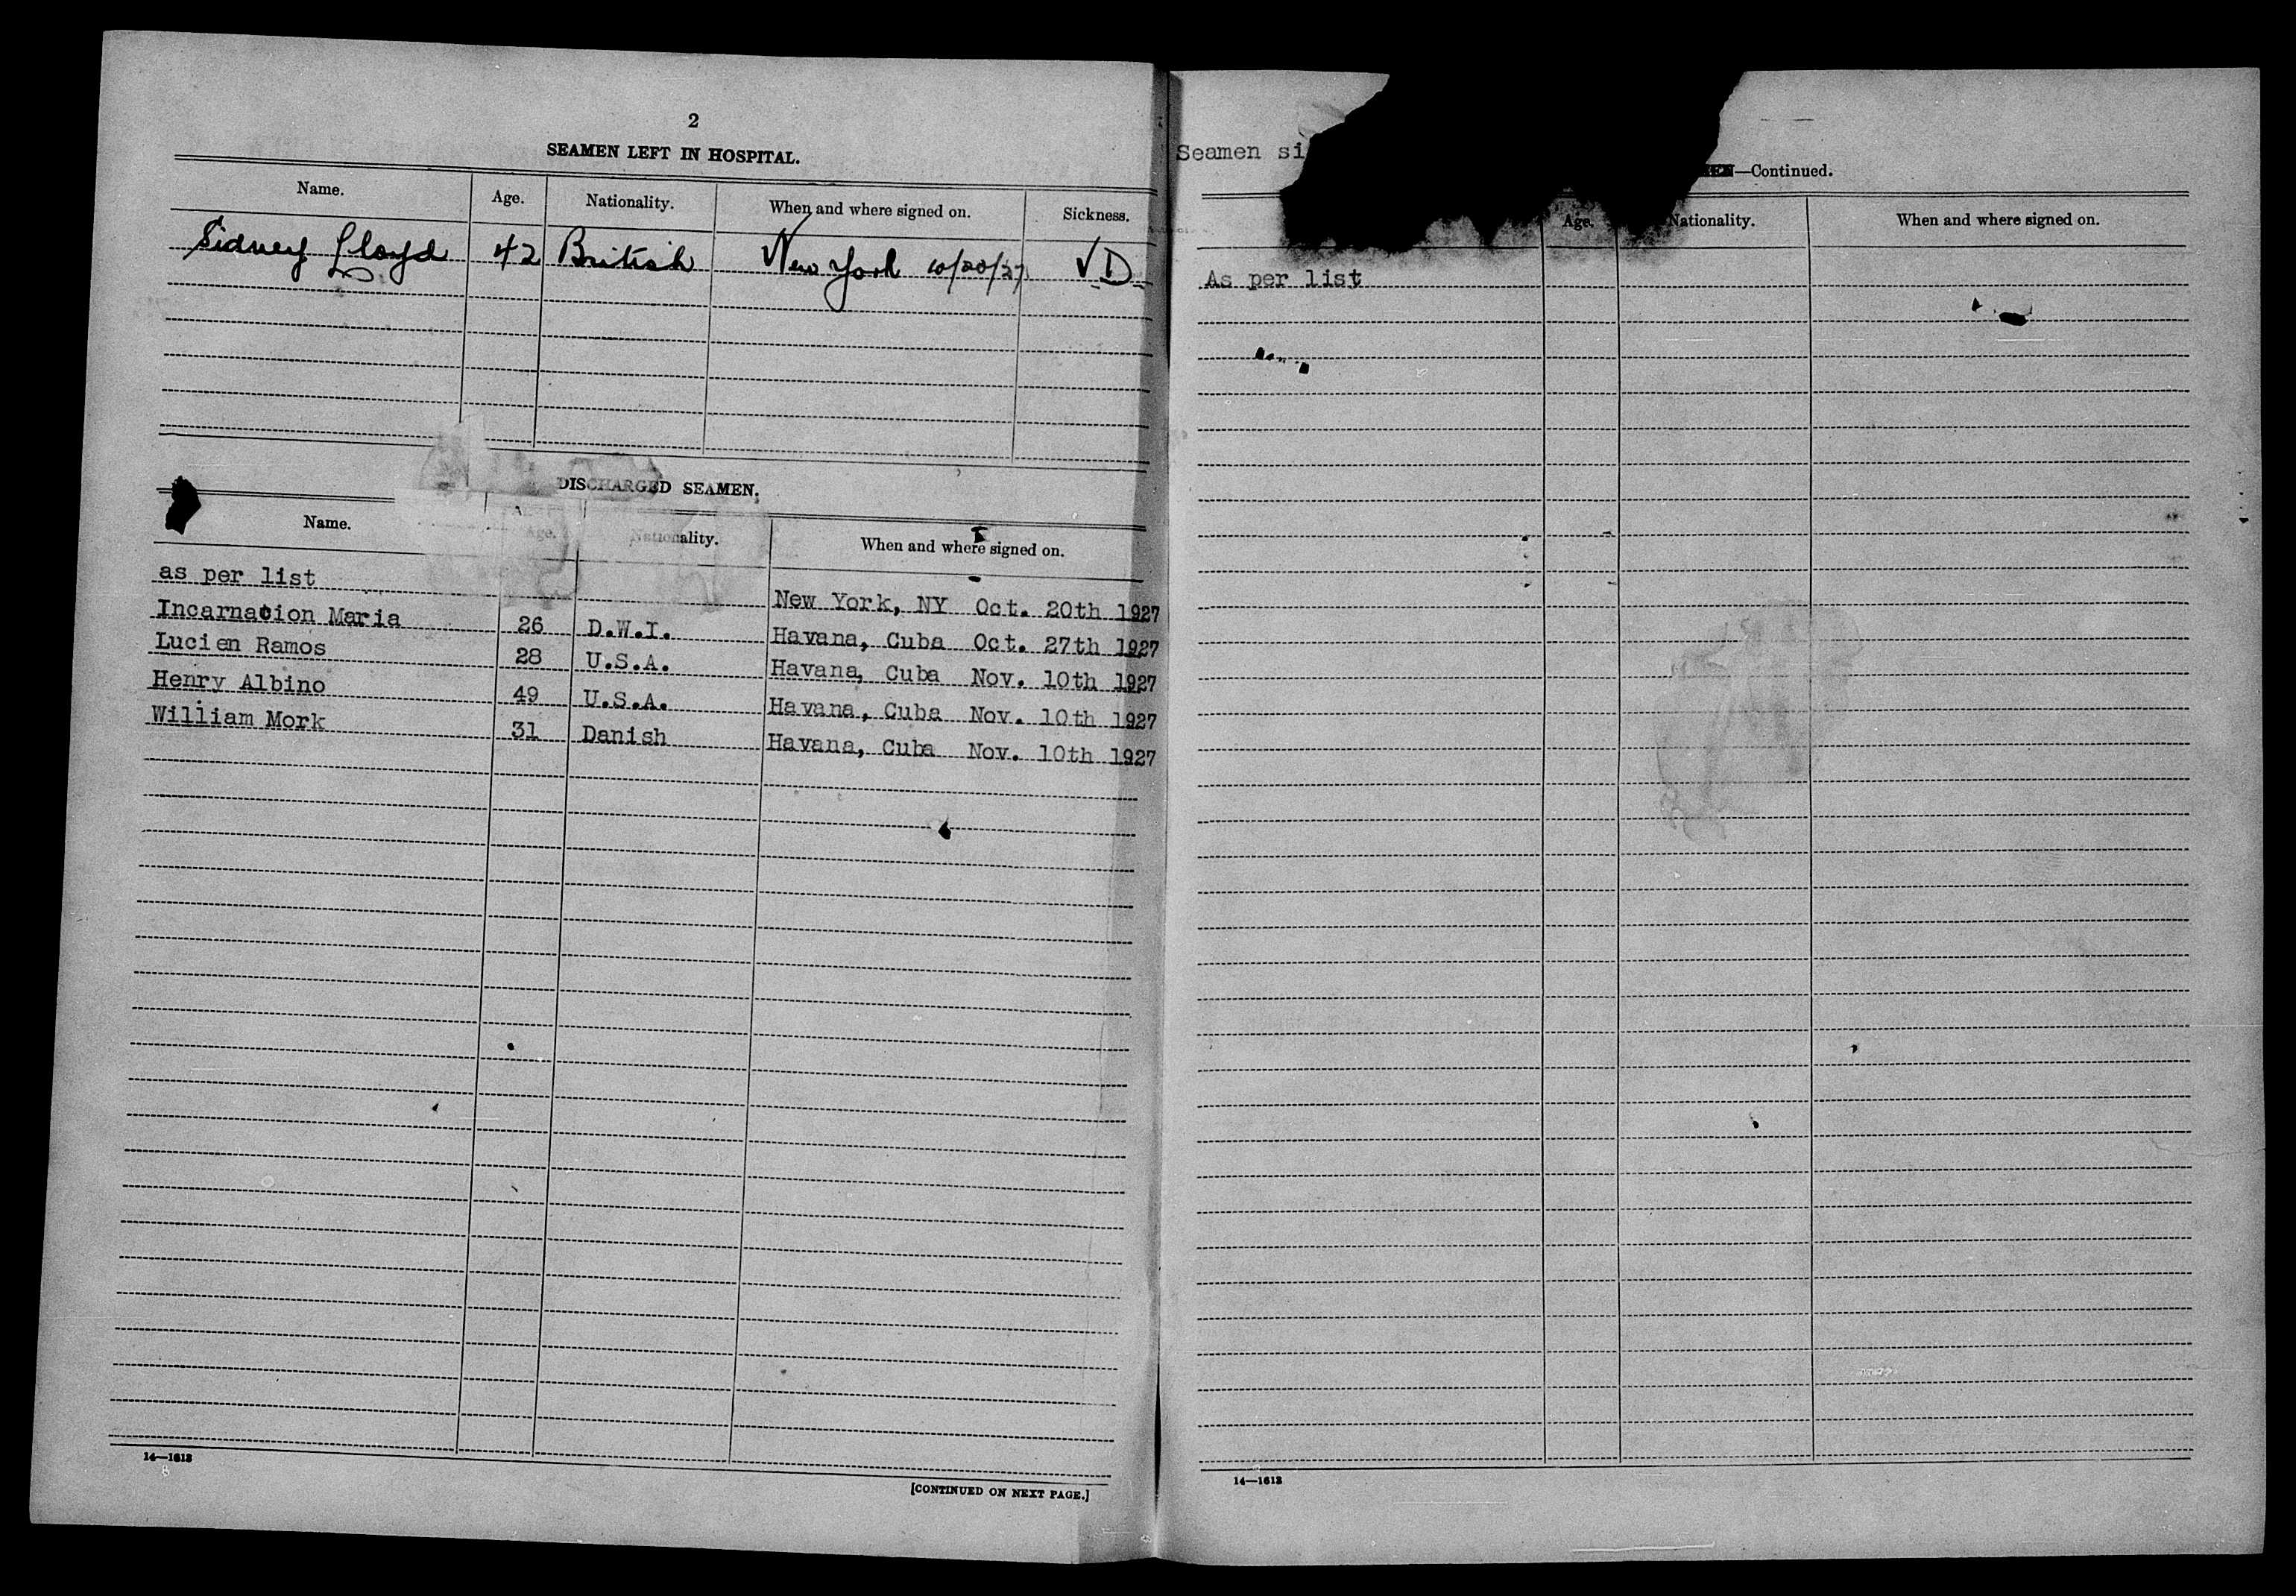 2
SEAMEN LEFT IN HOSPITAL.
Name. Age. Nationality. When and where signed on. Sickness.
Sidney Lloyd 42 British New York 10/20/27 VD
DISCHARGED SEAMEN.
Name. Age. Nationality. When and where signed on.
as per list New York, NY Oct. 20th 1927
Incarnacion Maria 26 D.W.I. Havana, Cuba Oct. 27th 1927
Lucien Ramos 28 U.S.A. Havana, Cuba Nov. 10th 1927
Henry Albino 49 U.S.A. Havana, Cuba Nov. 10th 1927
William Mork 31 Danish Havana, Cuba Nov. 10th 1927
14—1613
[CONTINUED ON NEXT PAGE.]
Seamen si
—Continued.
Age. Nationality. When and where signed on.
As per list
14—1613